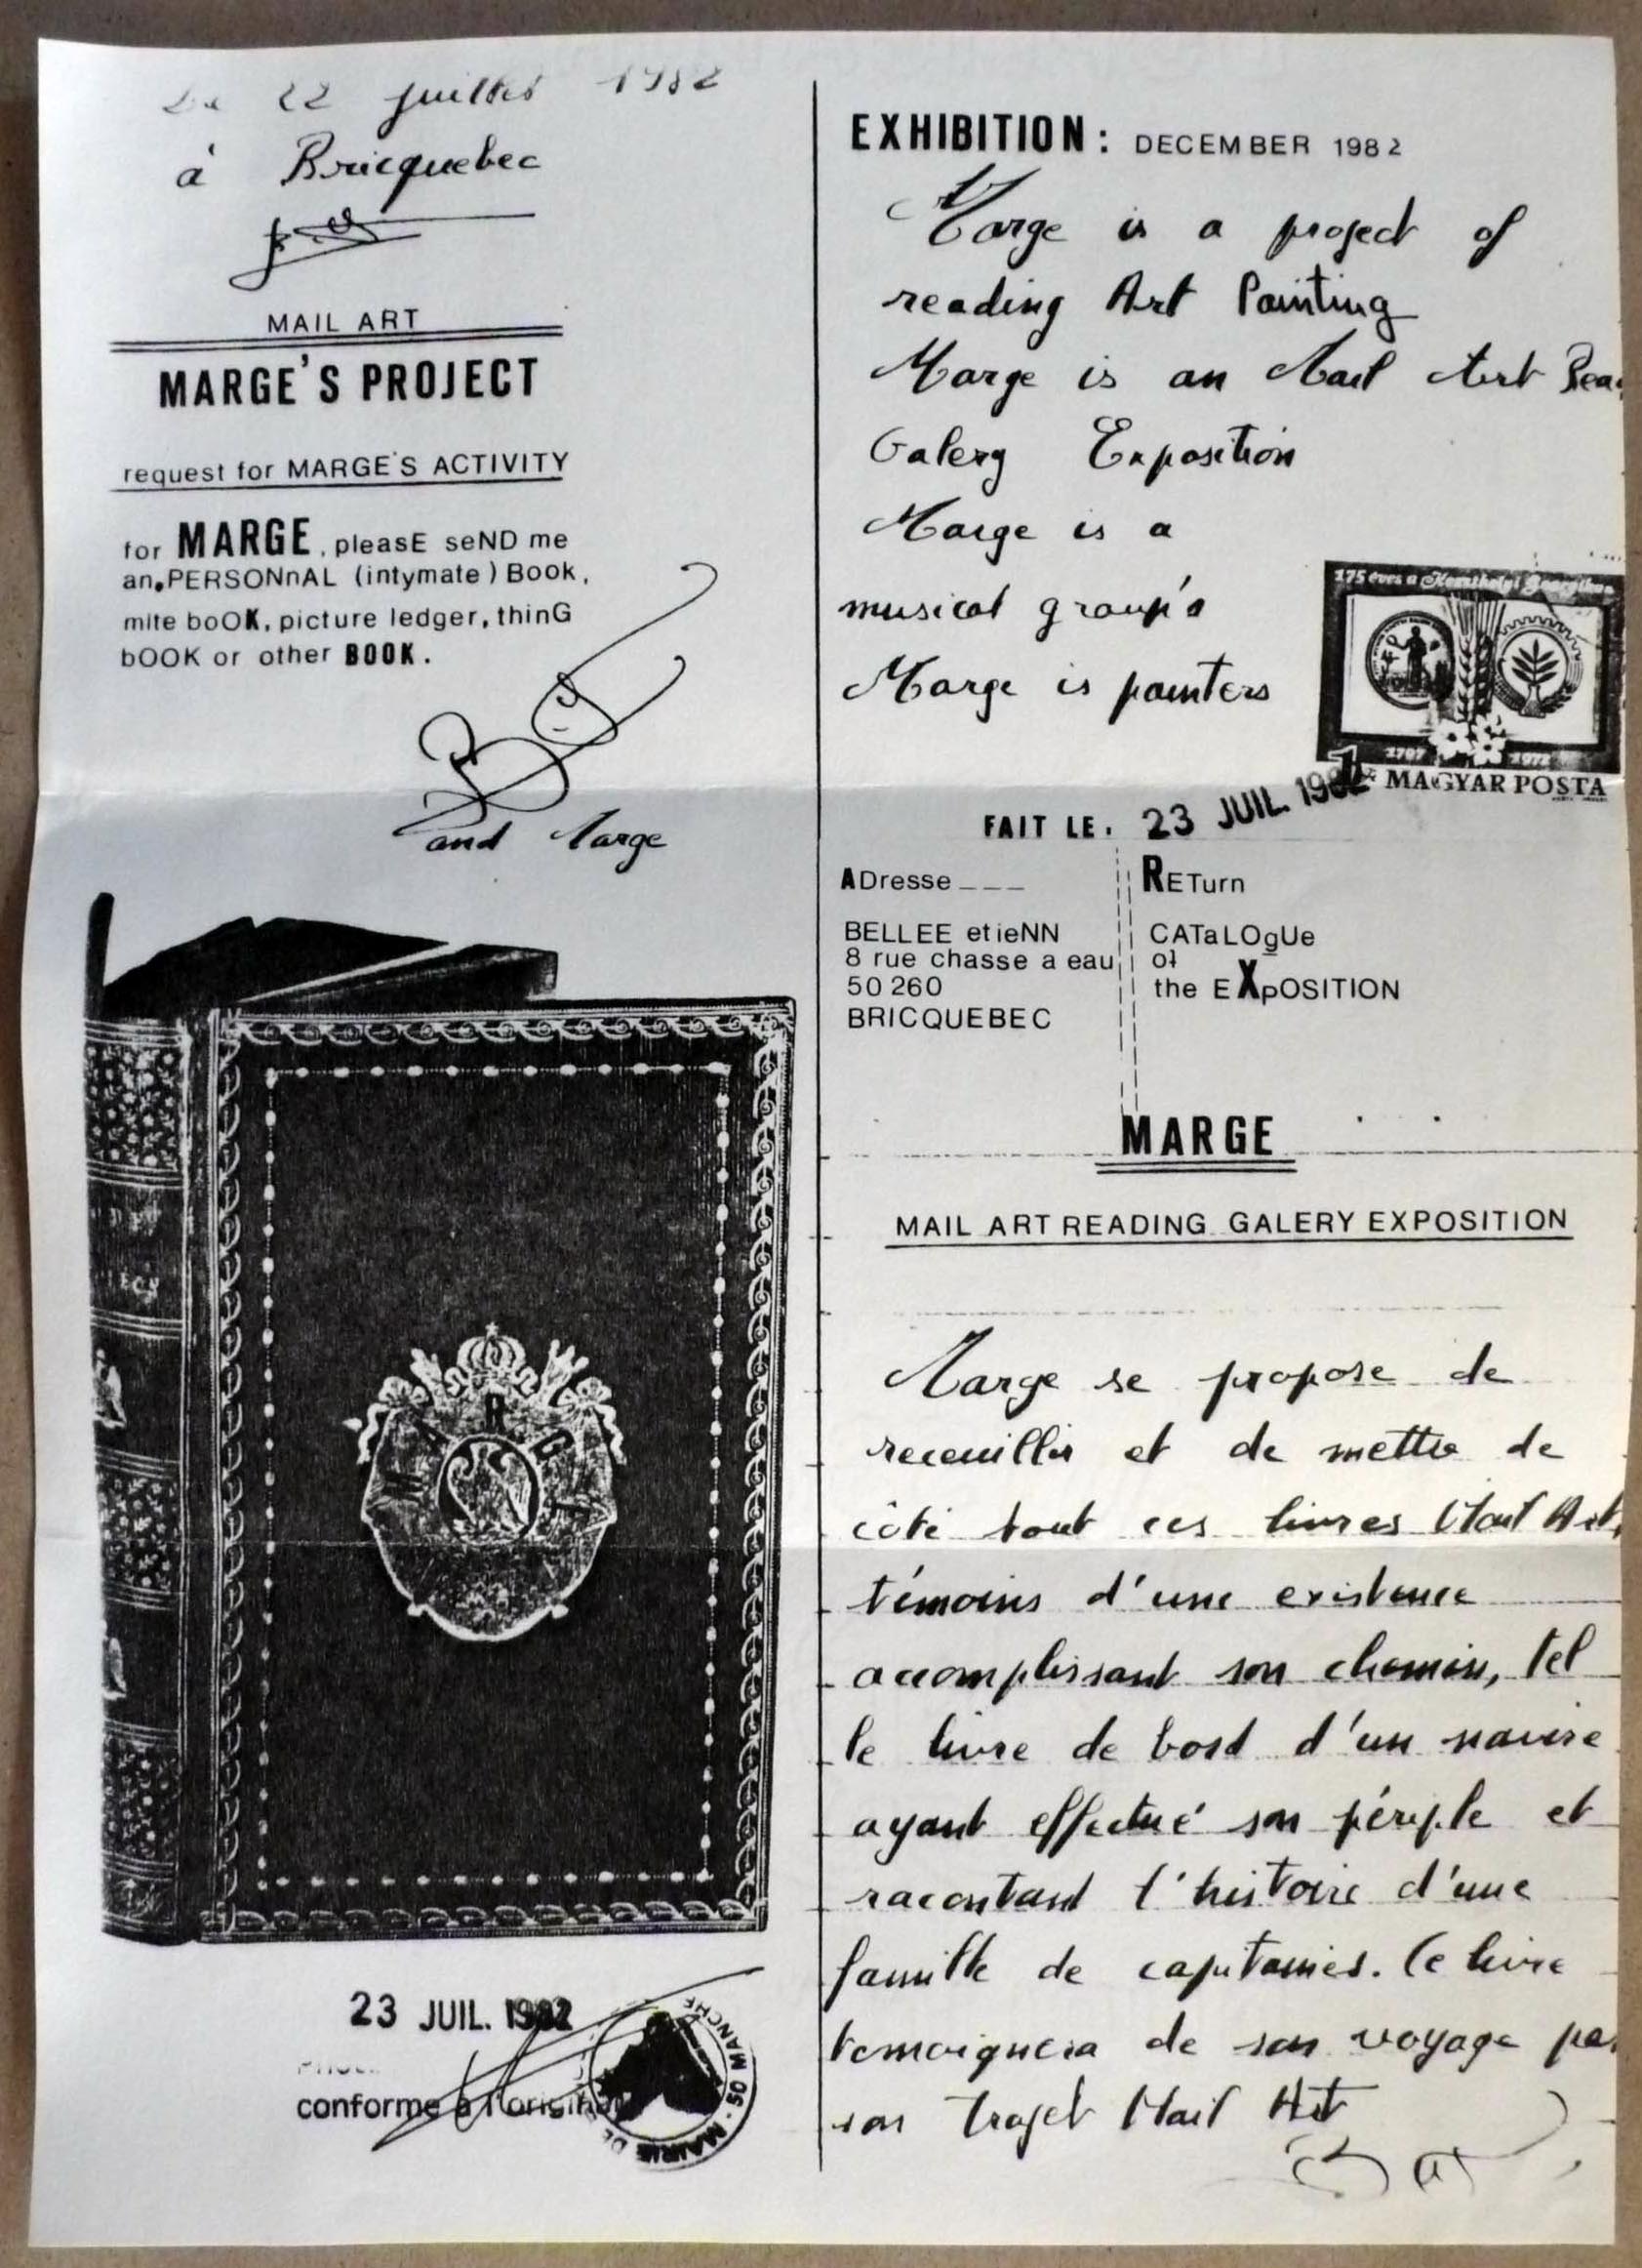 Le 22 juillet 1982
à Bricquebec
MAIL ART
MARGE'S PROJECT
request for MARGE'S ACTIVITY
for MARGE, pleasE seND me
an.PERSONnAL (intymate) Book,
mite boOK, picture ledger, thinG
bOOK or other BOOK.
and Marge
MARGE
23 JUIL. 1982
conforme à l'original
MAIRIE DE
50 MANCHE
EXHIBITION: DECEMBER 1982
Marge is a project of
reading Art Painting
Marge is an Mail Art Rea
Galery Exposition
Marge is a
musical group's
Marge is painters
175 éves a Keszthelyi
1797 1972
MAGYAR POSTA
FAIT LE. 23 JUIL. 1982
ADresse ---
BELLEE etieNN
8 rue chasse a eau
50 260
BRICQUEBEC
RETurn
CATaLOgUe
of
the EXpOSITION
MARGE
MAIL ART READING GALERY EXPOSITION
Marge se propose de
receuillir et de mettre de
côté tout ces livres Mail Art,
témoins d'une existence
accomplissant son chemin, tel
le livre de bord d'un navire
ayant effectué son périple et
racontant l'histoire d'une
famille de capitaines. Ce livre
temoignera de son voyage pa
son trajet Mail Art